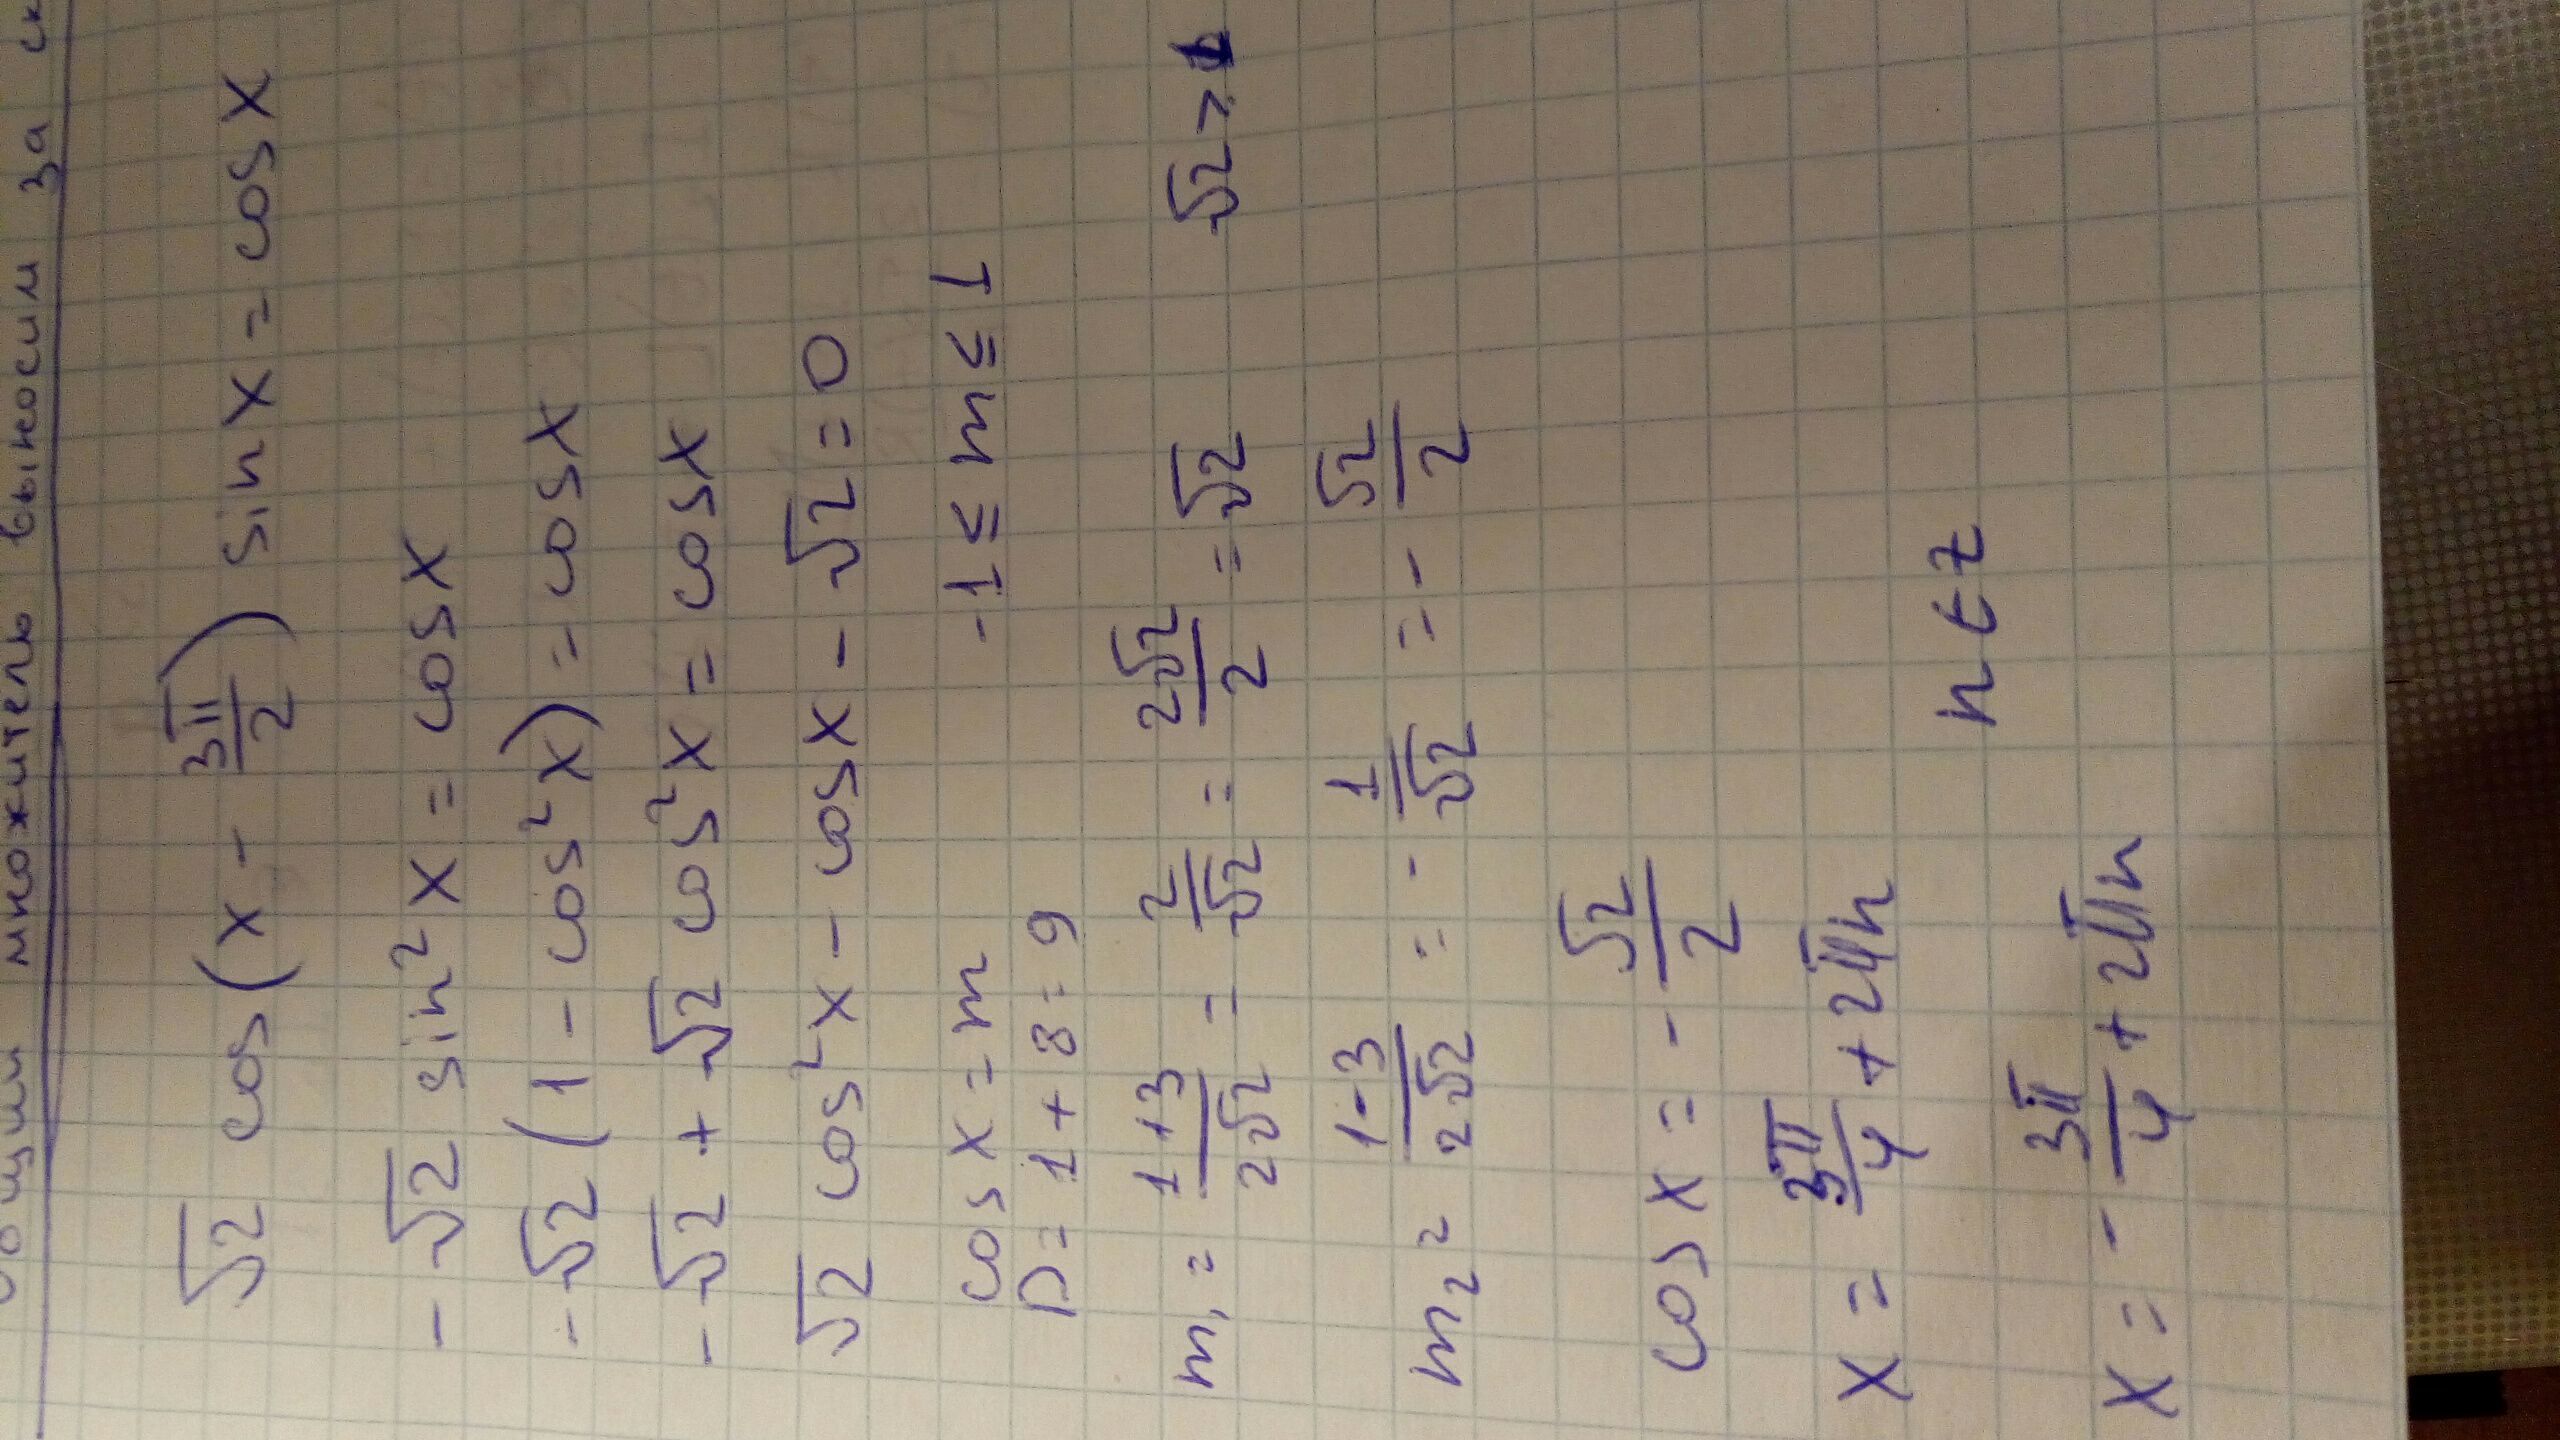 множитель выносим за
√2 cos(x - 3π/2) sinx = cosx
-√2 sin²x = cosx
-√2(1 - cos²x) = cosx
-√2 + √2 cos²x = cosx
√2 cos²x - cosx - √2 = 0
cosx = m -1 ≤ m ≤ 1
D = 1 + 8 = 9
m₁ = (1+3)/(2√2) = 2/√2 = 2√2/2 = √2 √2 > 1
m₂ = (1-3)/(2√2) = -1/√2 = -√2/2
cosx = -√2/2
x = 3π/4 + 2πn
n ∈ z
x = -3π/4 + 2πn